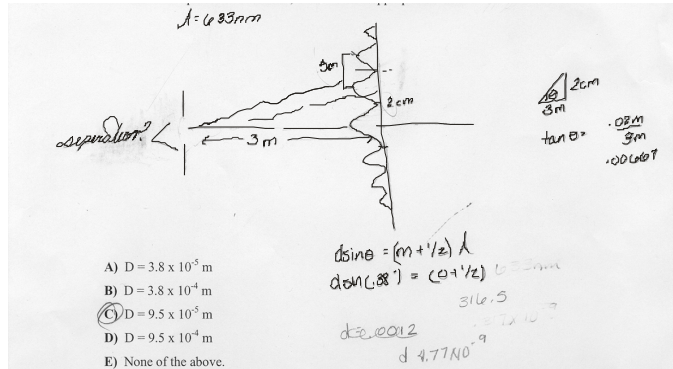 λ = 633nm
3cm
2cm
seperation?
3m
θ
2cm
3m
tan θ = .02m
3m
.00667
dsinθ = (m + 1/2) λ
dsin(.38°) = (0 + 1/2) 633nm
316.5
d = .0012
d 4.77x10⁻⁹
A) D = 3.8 x 10⁻⁵ m
B) D = 3.8 x 10⁻⁴ m
C) D = 9.5 x 10⁻⁵ m
D) D = 9.5 x 10⁻⁴ m
E) None of the above.